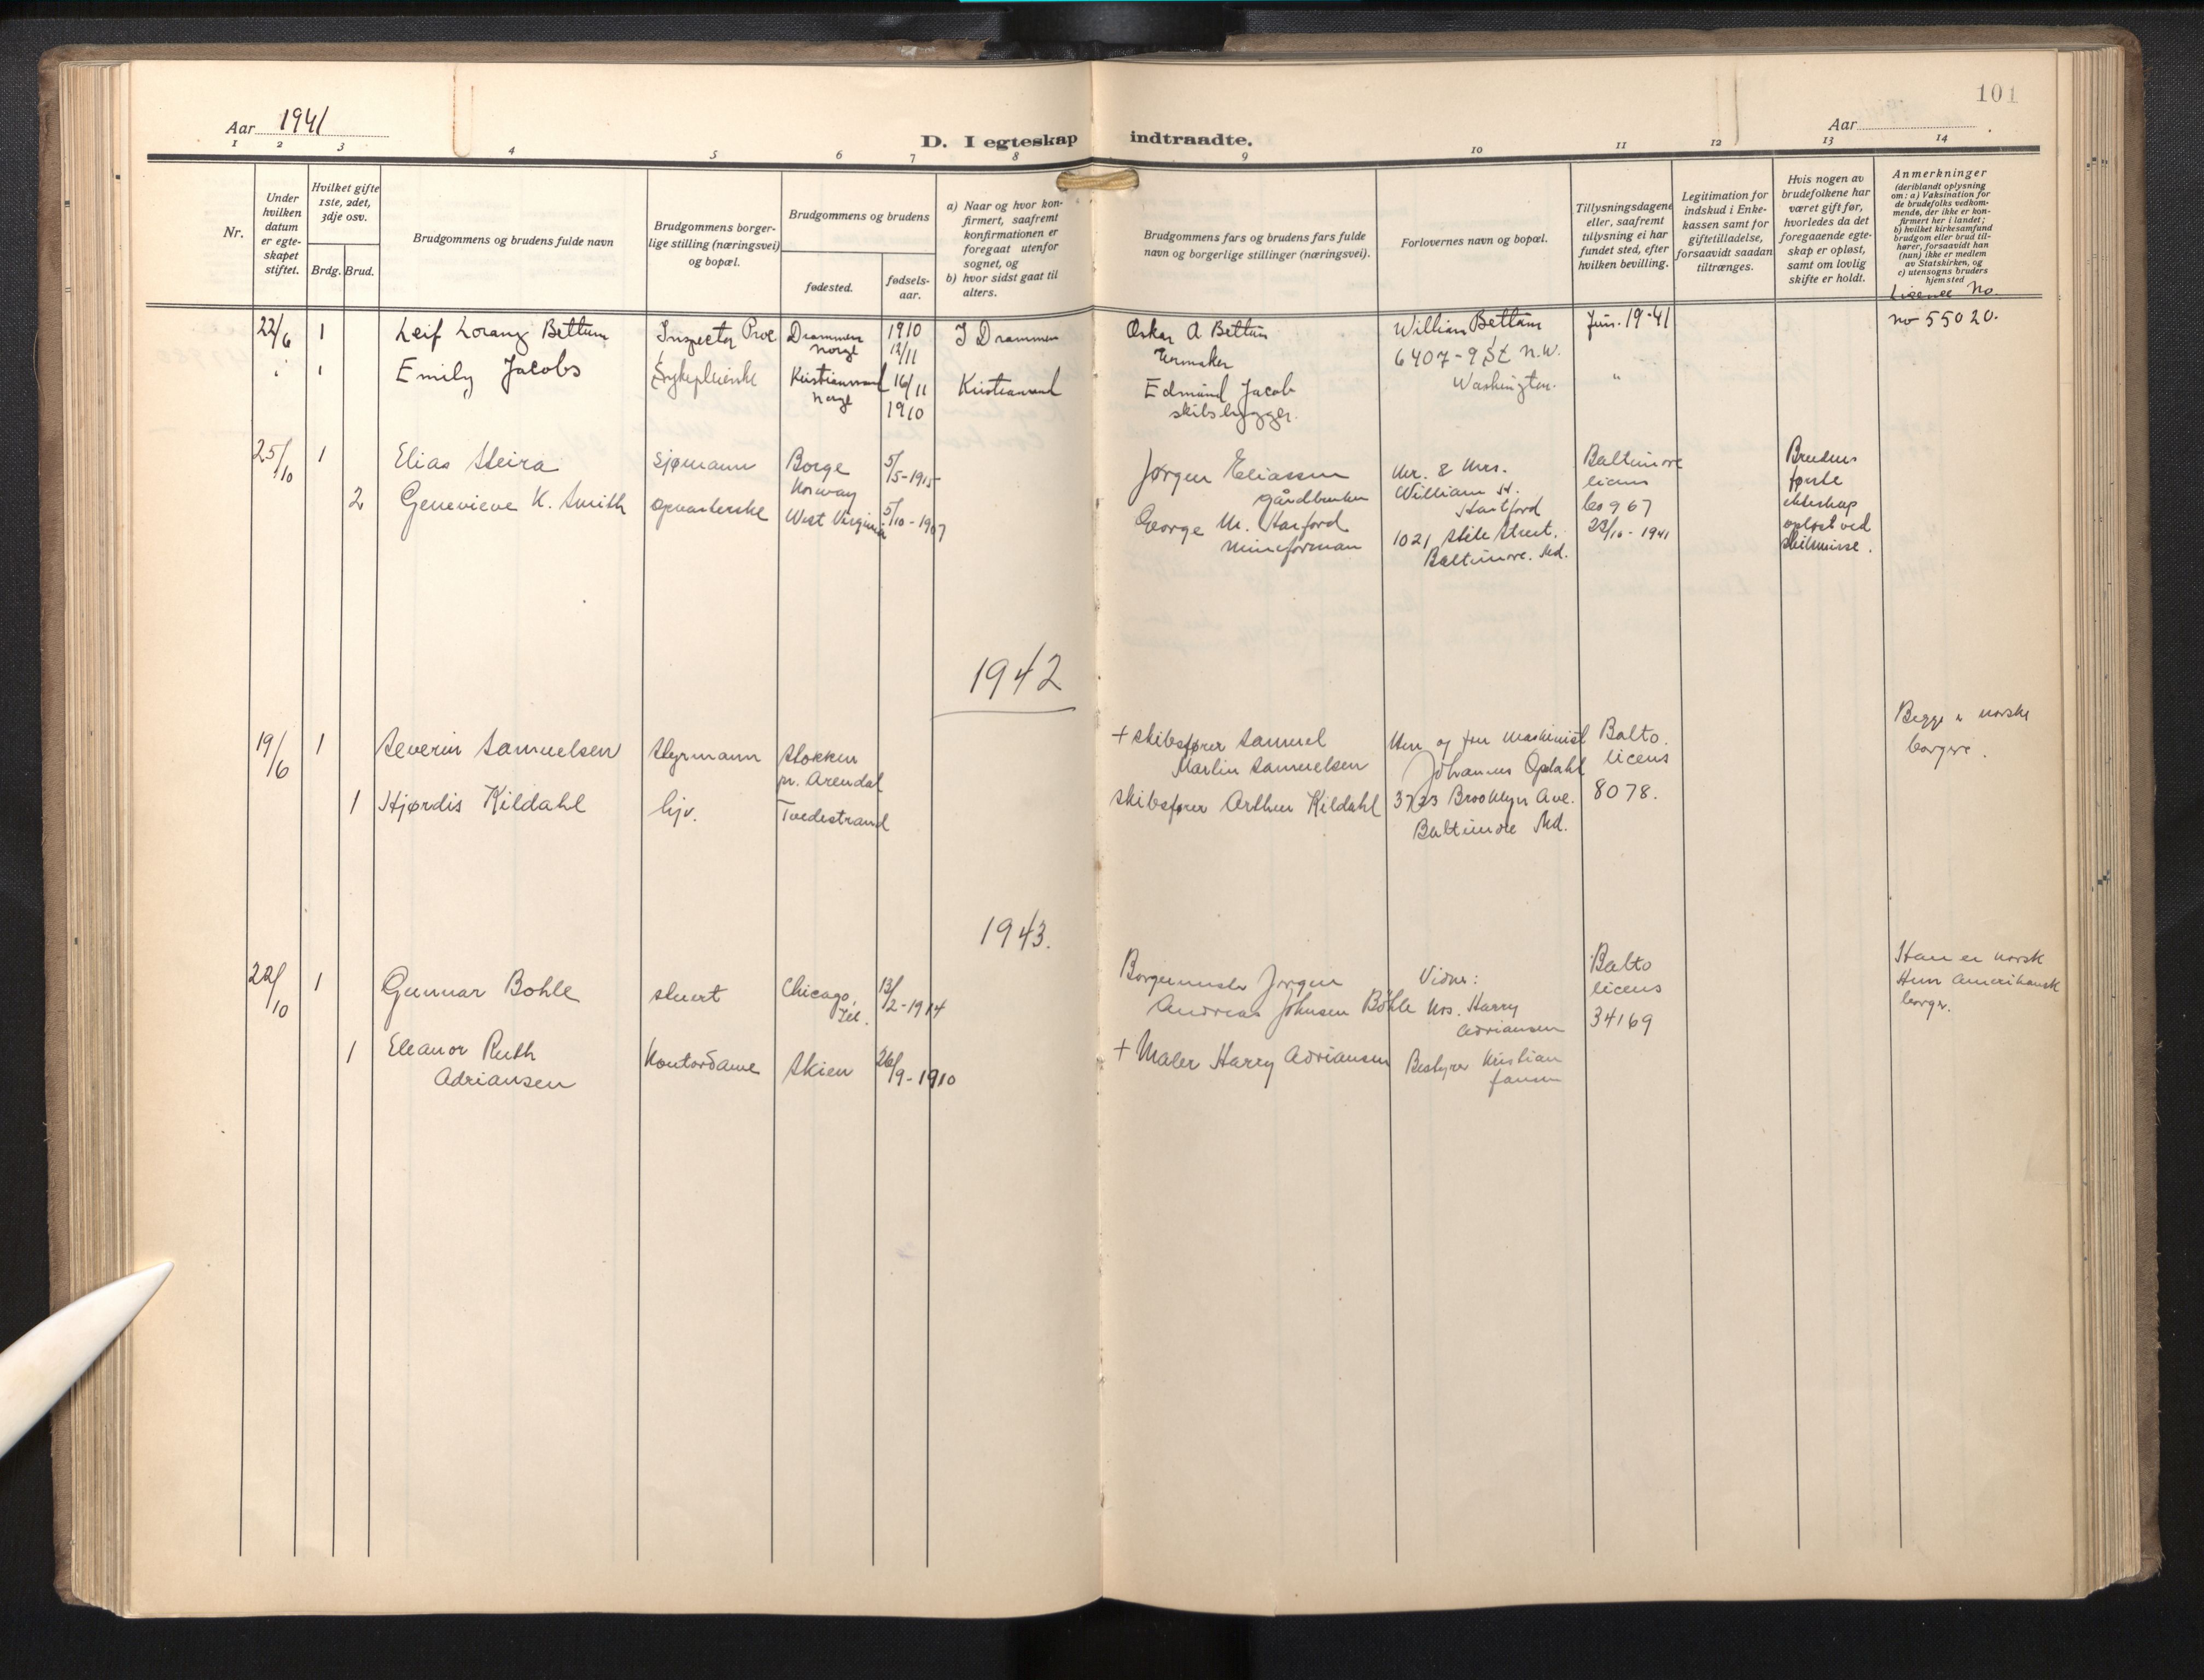 101
Aar 1941
Aar
D. I egteskap indtraadte.
1 2 3 4 5 6 7 8 9 10 11 12 13 14
Nr.
Under
hvilken
datum
er egte-
skapet
stiftet.
Hvilket gifte
1ste, 2det,
3dje osv.
Brdg. Brud.
Brudgommens og brudens fulde navn
Brudgommens borger-
lige stilling (næringsvei)
og bopæl.
Brudgommens og brudens
fødested.
fødsels-
aar.
a) Naar og hvor kon-
firmert, saafremt
konfirmationen er
foregaat utenfor
sognet, og
b) hvor sidst gaat til
alters.
Brudgommens fars og brudens fars fulde
navn og borgerlige stillinger (næringsvei).
Forlovernes navn og bopæl.
Tillysningsdagene
eller, saafremt
tillysning ei har
fundet sted, efter
hvilken bevilling.
Legitimation for
indskud i Enke-
kassen samt for
giftetilladelse,
forsaavidt saadan
tiltrænges.
Hvis nogen av
brudefolkene har
været gift før,
hvorledes da det
foregaaende egte-
skap er opløst,
samt om lovlig
skifte er holdt.
Anmerkninger
(deriblandt oplysning
om: a) Vaksination for
de brudefolks vedkom-
mende, der ikke er kon-
firmert her i landet;
b) hvilket kirkesamfund
brudgom eller brud til-
hører, forsaavidt han
(hun) ikke er medlem
av Statskirken, og
c) utensogns bruders
hjemsted
License No.
22/6 1 Leif Lorang Bettum
Drammen
Norge
1910
12/11
I Drammen
Oskar A Bettum
Urmaker
William Bettum
6407-9 St N.W.
Washington.
Juni. 19-41
no 55020.
1 Emily Jacobs
Sykepleierske
Kristiansand
Norge
16/11
1910
Kristiansand
Edmund Jacob
skibsbygger.
"
25/10 1 Elias Steira
sjømann
Borge
Norway
5/5-1915
Jørgen Eliassen
gårdbruker
Mr. & Mrs.
William H.
Hartford
1021 Stile Street.
Baltimore. Md.
Baltimore
licens
967
23/10-1941
Brudens
første
ekteskap
opløst ved
skilsmisse.
2 Genevieve K. Smith
opvarterske
West Virginia
5/10-1907
George M. Harford
Mineforman
1942
19/6 1 Severin Samuelsen
styrmann
Stokken
pr. Arendal
+ skibsfører Samuel
Martin Samuelsen
Herr og fru maskinist
Johannes Opdahl
3723 Brooklyn Ave.
Baltimore Md.
Balto.
licens
8078.
Begge er norske
borgere.
1 Hjørdis Kildahl
hjv.
Tvedestrand
skibsfører Arthur Kildahl
1943.
22/10 1 Gunnar Bohle
stuert
Chicago,
Ill.
13/2-1914
Borgermester Jørgen
Andreas Johnsen Bøhle
Vidner:
Mrs. Harry
Adriansen
Bestyrer Kristian
Balto
licens
34169
Han er norsk
Hun amerikansk
borger.
1 Eleanor Ruth
Adriansen
Kontordame
Skien
26/9-1910
+ Maler Harry Adriansen